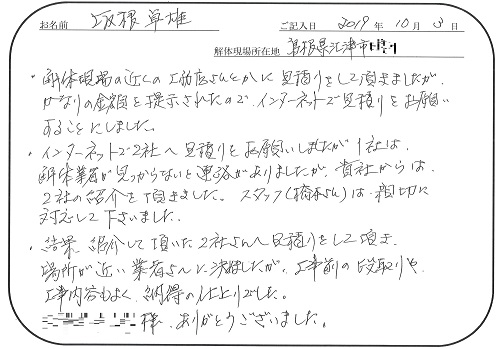 お名前 坂根卓雄 ご記入日 2019年10月3日
解体現場所在地 島根県江津市
・解体現場の近くの工務店さんとかに見積りをして頂きましたが、
かなりの金額を提示されたので、インターネットで見積りをお願い
することにしました。
・インターネットで2社へ見積りをお願いしましたが1社は、
解体業者が見つからないと連絡がありましたが、貴社からは、
2社の紹介を頂きました。スタッフ(橋本さん)は、親切に
対応して下さいました。
・結果、紹介して頂いた2社さんへ見積りをして頂き、
場所が近い業者さんに決めましたが、工事前の段取りや、
工事内容もよく、納得の仕上りでした。
様、ありがとうございました。